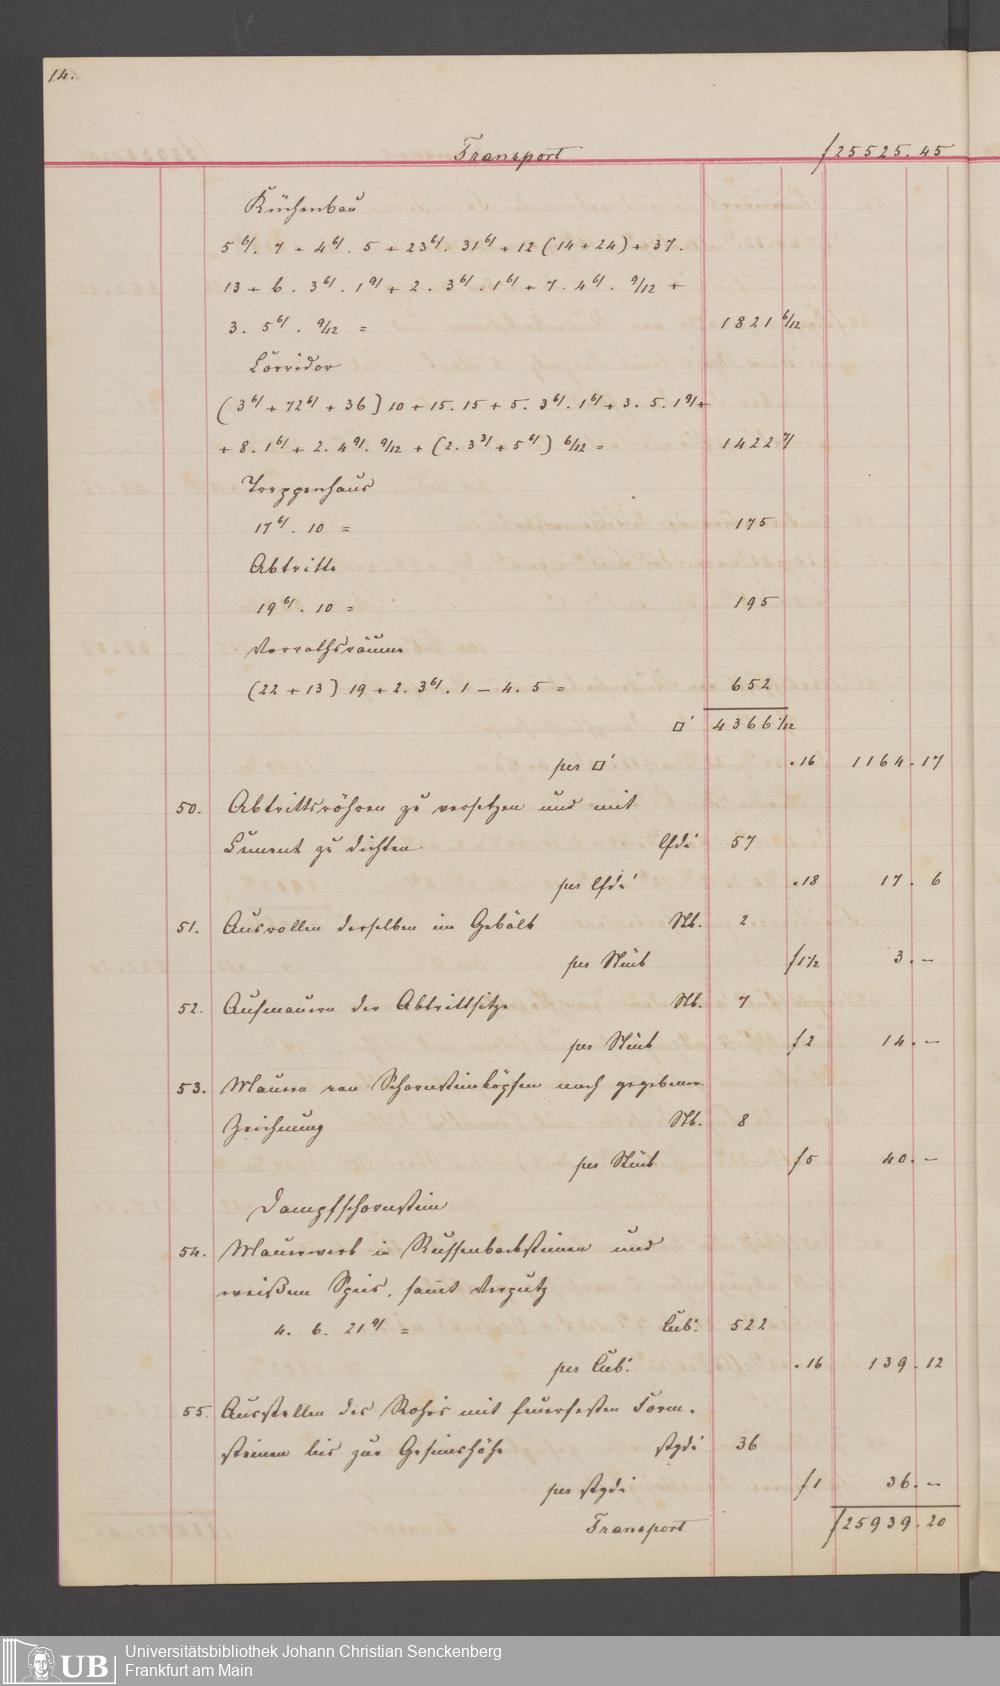 14.
Transport f 25525. 45
Küchenbau
5 6/. 7 + 4 6/. 5 + 23 6/. 31 6/ + 12 (14 + 24) + 37.
13 + 6. 3 6/. 1 9/ + 2. 3 6/. 1 6/ + 7. 4 6/. 9/12 +
3. 5 6/. 9/12 = 1821 6/12
Corridor
(3 6/ + 72 6/ + 36) 10 + 15. 15 + 5. 3 6/. 1 6/ + 3. 5. 1 9/ +
+ 8. 1 6/ + 2. 4 9/. 9/12 + (2. 3 3/ + 5 6/) 6/12 = 1422 7/
Treppenhaus
17 6/. 10 = 175
Abtritte
19 6/. 10 = 195
Vorrathsräume
(22 + 13) 19 + 2. 3 6/. 1 – 4. 5 = 652
□' 4366 1/12
per □' . 16 1164. 17
50. Abtrittsröhren zu versetzen und mit
Cement zu dichten lfd' 57
per lfd' . 18 17. 6
51. Ausrollen derselben im Gebälk Stk. 2
per Stück f 1 1/2 3. –
52. Aufmauern der Abtrittsitze Stk. 7
per Stück f 2 14. –
53. Mauern von Schornsteinköpfen nach gegebener
Zeichnung Stk. 8
per Stück f 5 40. –
Dampfschornstein
54. Mauerwerk in Russenbacksteinen und
weißem Speis, samt Verputz
4. 6. 21 9/ = Cub'. 522
per Cub'. . 16 139. 12
55. Ausstellen des Rohrs mit feuerfesten Form-
steinen bis zur Gesimshöhe stgd' 36
per stgd' f 1 36. –
Transport f 25939. 20
UB Universitätsbibliothek Johann Christian Senckenberg
Frankfurt am Main